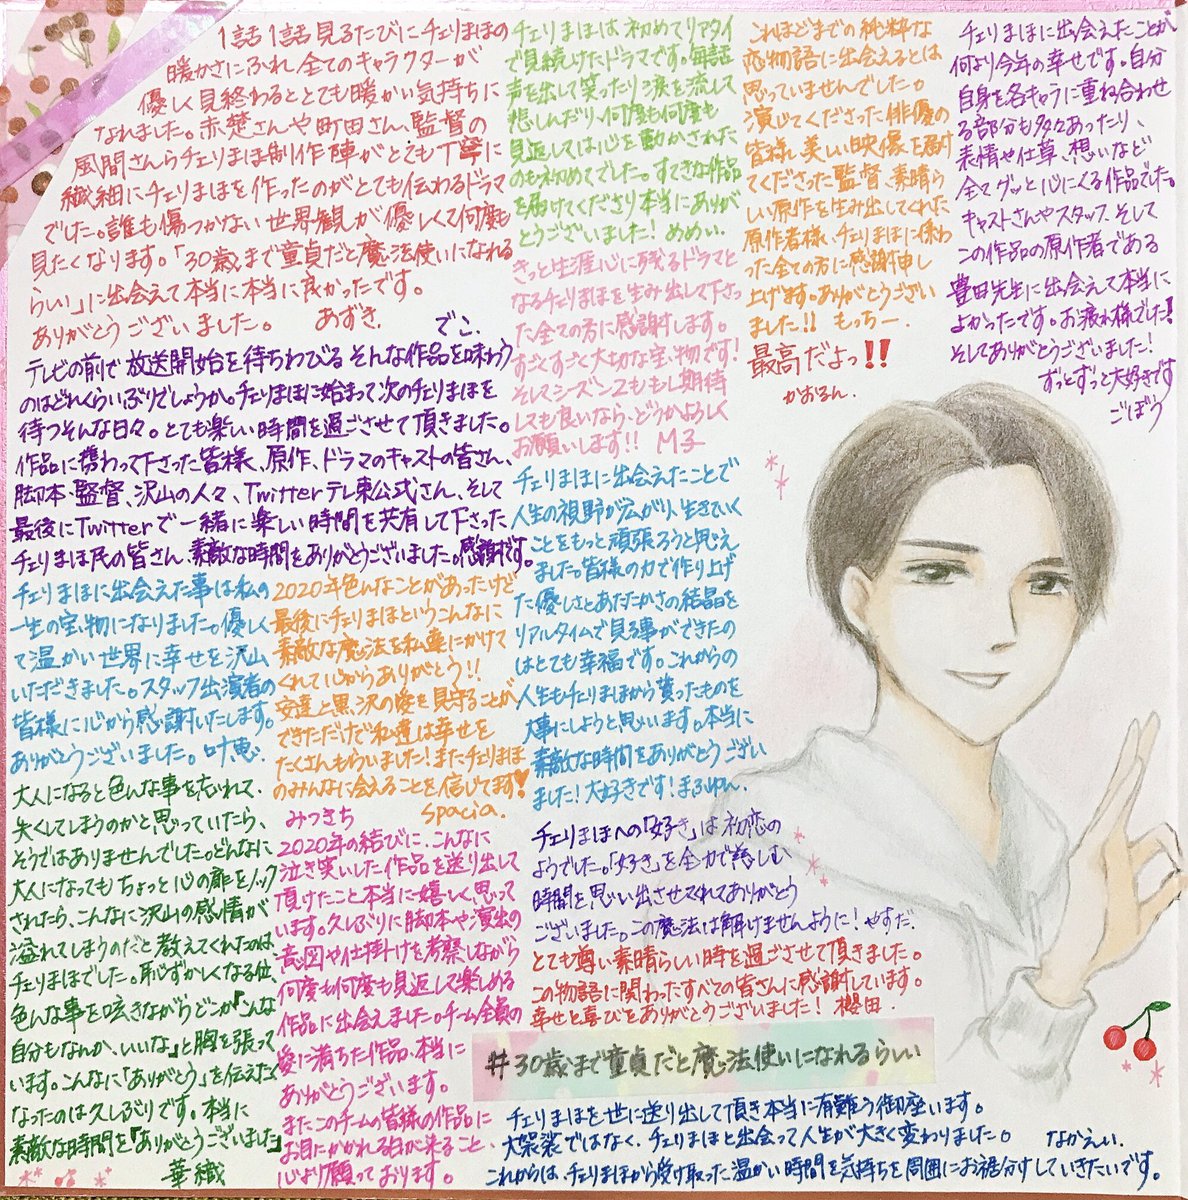 1話1話見るたびにチェリまほの
暖かさにふれ、全てのキャラクターが
優しく見終わるととても暖かい気持ちに
なれました。赤楚さんや町田さん、監督の
風間さんらチェリまほ制作陣がとても丁寧に
繊細にチェリまほを作ったのがとても伝わるドラマ
でした。誰も傷つかない世界観が優しくて何度も
見たくなります。「30歳まで童貞だと魔法使いになれる
らしい」に出会えて本当に本当に良かったです。
ありがとうございました。 あずき.
でこ.
テレビの前で放送開始を待ちわびるそんな作品を味わう
のはどれくらいぶりでしょうか。チェリまほに始まって次のチェリまほを
待つそんな日々。とても楽しい時間を過ごさせて頂きました。
作品に携わって下さった皆様、原作、ドラマのキャストの皆さん、
脚本・監督、沢山の人々、Twitterテレ東公式さん、そして
最後にTwitterで一緒に楽しい時間を共有して下さった
チェリまほ民の皆さん、素敵な時間をありがとうございました。感謝です。
チェリまほに出会えた事は私の
一生の宝物になりました。優しく
て温かい世界に幸せを沢山
いただきました。スタッフ出演者の
皆様に心から感謝いたします。
ありがとうございました。叶恵.
大人になると色んな事を忘れて、
失くしてしまうのかと思っていたら、
そうではありませんでした。どんなに
大人になってもちょっと心の扉をノック
されたら、こんなに沢山の感情が
溢れてしまうのだと教えてくれたのは
チェリまほでした。恥ずかしくなる位、
色んな事を呟きながらどこか『こんな
自分もなんか、いいな』と胸を張って
います。こんなに「ありがとう」を伝えたく
なったのは久しぶりです。本当に
素敵な時間を『ありがとうございました』
華織
2020年色んなことがあったけど
最後にチェリまほというこんなに
素敵な魔法を私達にかけて
くれて心からありがとう!!
安達と黒沢の愛を見守ることが
できただけで私達は幸せを
たくさんもらいました!またチェリまほ
のみんなに会えることを信じてます!
spacia.
みつきち
2020年の結びに、こんなに
泣き笑いした作品を送り出して
頂けたこと本当に嬉しく思って
います。久しぶりに脚本や演出の
意図や仕掛けを考察しながら
何度も何度も見返して楽しめる
作品に出会えました。チーム全員の
愛に満ちた作品、本当に
ありがとうございます。
またこのチームの皆様の作品に
お目にかかれる日が来ること、
心より願っております。
チェリまほは初めてリアタイ
で見続けたドラマです。毎話
声を出して笑ったり涙を流して
悲しんだり、何度も何度も
見返しては心を動かされた
のも初めてでした。すてきな作品
を届けてくださり本当にありが
とうございました! めめい.
きっと生涯心に残るドラマと
なるチェリまほを生み出して下さっ
た全ての方に感謝します。
すごくすごく大切な宝物です!
そしてシーズン2ももし期待
しても良いなら、どうかよろしく
お願いします!! M子
チェリまほに出会えたことで
人生の視野が広がり、生きていく
ことをもっと頑張ろうと思え
ました。皆様の力で作り上げ
た優しさとあたたかさの結晶を
リアルタイムで見る事ができたの
はとても幸福です。これからの
人生もチェリまほから貰ったものを
大事にしようと思います。本当に
素敵な時間をありがとうござい
ました!大好きです!まふゆん.
チェリまほへの「好き」は初恋の
ようでした。「好き」を全力で慈しむ
時間を思い出させてくれてありがとう
ございました。この魔法は解けませんように! やすだ.
とても尊い素晴らしい時を過ごさせて頂きました。
この物語に関わったすべての皆さんに感謝しています。
幸せと喜びをありがとうございました! 櫻田.
これほどまでの純粋な
恋物語に出会えるとは
思っていませんでした。
演じてくださった俳優の
皆様、美しい映像を届け
てくださった監督、素晴ら
しい原作を生み出してくれた
原作者様、チェリまほに係わ
った全ての方に感謝申し
上げます。ありがとうござい
ました!! もっちー.
最高だよっ!!
かおるん.
チェリまほに出会えたことが
何より今年の幸せです。自分
自身を各キャラに重ね合わせ
る部分も多々あったり、
表情や仕草、想いなど
全てグッと心にくる作品でした。
キャストさんやスタッフ、そして
この作品の原作者である
豊田先生に出会えて本当に
よかったです。お疲れ様でした!
そしてありがとうございました!
ずっとずっと大好きです
ごぼう
#30歳まで童貞だと魔法使いになれるらしい
チェリまほを世に送り出して頂き本当に有難う御座います。
大袈裟ではなく、チェリまほと出会って人生が大きく変わりました。 ながえい.
これからは、チェリまほから受け取った温かい時間を気持ちを周囲にお裾分けしていきたいです。